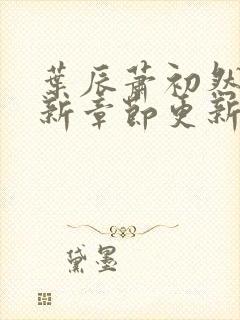 葉辰蕭初然
新章節更新
黛墨